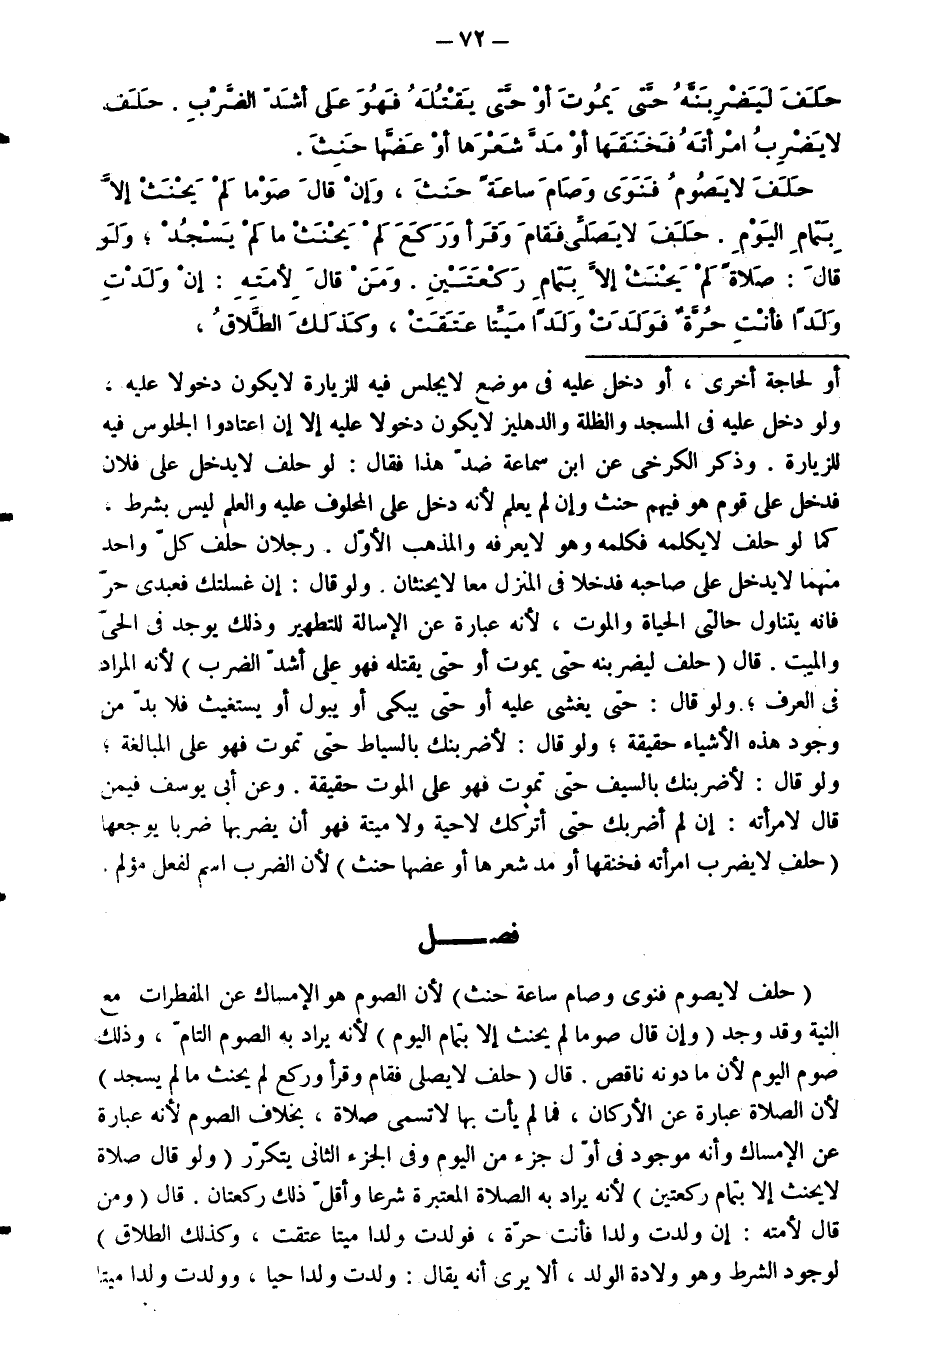 – ٧٢ –
حَلَفَ لَيَضْرِبَنَّهُ حَتَّى يَمُوتَ أَوْ حَتَّى يَقْتُلَهُ فَهُوَ عَلَى أَشَدِّ الضَّرْبِ . حَلَفَ
لا يَضْرِبُ امْرأتَهُ فَخَنَقَها أوْ مَدَّ شَعْرَها أوْ عَضَّها حَنِثَ .
حَلَفَ لا يَصُومُ فَنَوَى وَصَامَ ساعَةً حَنثَ ، وَإنْ قالَ صَوْما كَمْ يَحْنَثْ إلاَّ
بِتَمامِ اليَوْمِ . حَلَفَ لا يُصَلَّى فَقامَ وَقَرأ وَرَكَعَ لَمْ يَحْنَثْ ما لَمْ يَسْجُدْ ؛ وَلَو
قالَ : صَلاةً لَمْ يَحْنَثْ إلاَّ بِتَمامِ رَكْعَتَيْنِ . وَمَنْ قالَ لأمَتِهِ : إنْ وَلَدْتِ
وَلَدًا فأنْتِ حُرَّةٌ فَوَلَدَتْ وَلَدًا مَيِّتا عَتَقَتْ ، وكَذلكَ الطَّلاقُ ،
أو لحاجة أخرى ، أو دخل عليه فى موضع لايجلس فيه للزيارة لايكون دخولا عليه ،
ولو دخل عليه فى المسجد والظلة والدهليز لايكون دخولا عليه إلا إن اعتادوا الجلوس فيه
للزيارة . وذكر الكرخى عن ابن سماعة ضدّ هذا فقال : لو حلف لايدخل على فلان
فدخل على قوم هو فيهم حنث وإن لم يعلم لأنه دخل على المحلوف عليه والعلم ليس بشرط ،
كما لو حلف لايكلمه فكلمه وهو لايعرفه والمذهب الأوّل . رجلان حلف كلّ واحد
منهما لايدخل على صاحبه فدخلا فى المنزل معا لايحنثان . ولو قال : إن غسلتك فعبدى حرّ
فانه يتناول حالتى الحياة والموت ، لأنه عبارة عن الإسالة للتطهير وذلك يوجد فى الحىّ
والميت . قال ( حلف ليضربنه حتى يموت أو حتى يقتله فهو على أشدّ الضرب ) لأنه المراد
فى العرف ؛ ولو قال : حتى يغشى عليه أو حتى يبكى أو يبول أو يستغيث فلا بدّ من
وجود هذه الأشياء حقيقة ؛ ولو قال : لأضربنك بالسياط حتى تموت فهو على المبالغة ؛
ولو قال : لأضربنك بالسيف حتى تموت فهو على الموت حقيقة . وعن أبى يوسف فيمن
قال لامرأته : إن لم أضربك حتى أتركك لاحية ولا ميتة فهو أن يضربها ضربا يوجعها
( حلف لايضرب امرأته فخنقها أو مد شعرها أو عضها حنث ) لأن الضرب اسم لفعل مؤلم .
فصل
( حلف لايصوم فنوى وصام ساعة حنث ) لأن الصوم هو الإمساك عن المفطرات مع
النية وقد وجد ( وإن قال صوما لم يحنث إلا بتمام اليوم ) لأنه يراد به الصوم التامّ ، وذلك
صوم اليوم لأن ما دونه ناقص . قال ( حلف لايصلى فقام وقرأ وركع لم يحنث ما لم يسجد )
لأن الصلاة عبارة عن الأركان ، فما لم يأت بها لاتسمى صلاة ، بخلاف الصوم لأنه عبارة
عن الإمساك وأنه موجود فى أوّل جزء من اليوم وفى الجزء الثانى يتكرّر ( ولو قال صلاة
لايحنث إلا بتمام ركعتين ) لأنه يراد به الصلاة المعتبرة شرعا وأقلّ ذلك ركعتان . قال ( ومن
قال لأمته : إن ولدت ولدا فأنت حرّة ، فولدت ولدا ميتا عتقت ، وكذلك الطلاق )
لوجود الشرط وهو ولادة الولد ، ألا يرى أنه يقال : ولدت ولدا حيا ، وولدت ولدا ميتا